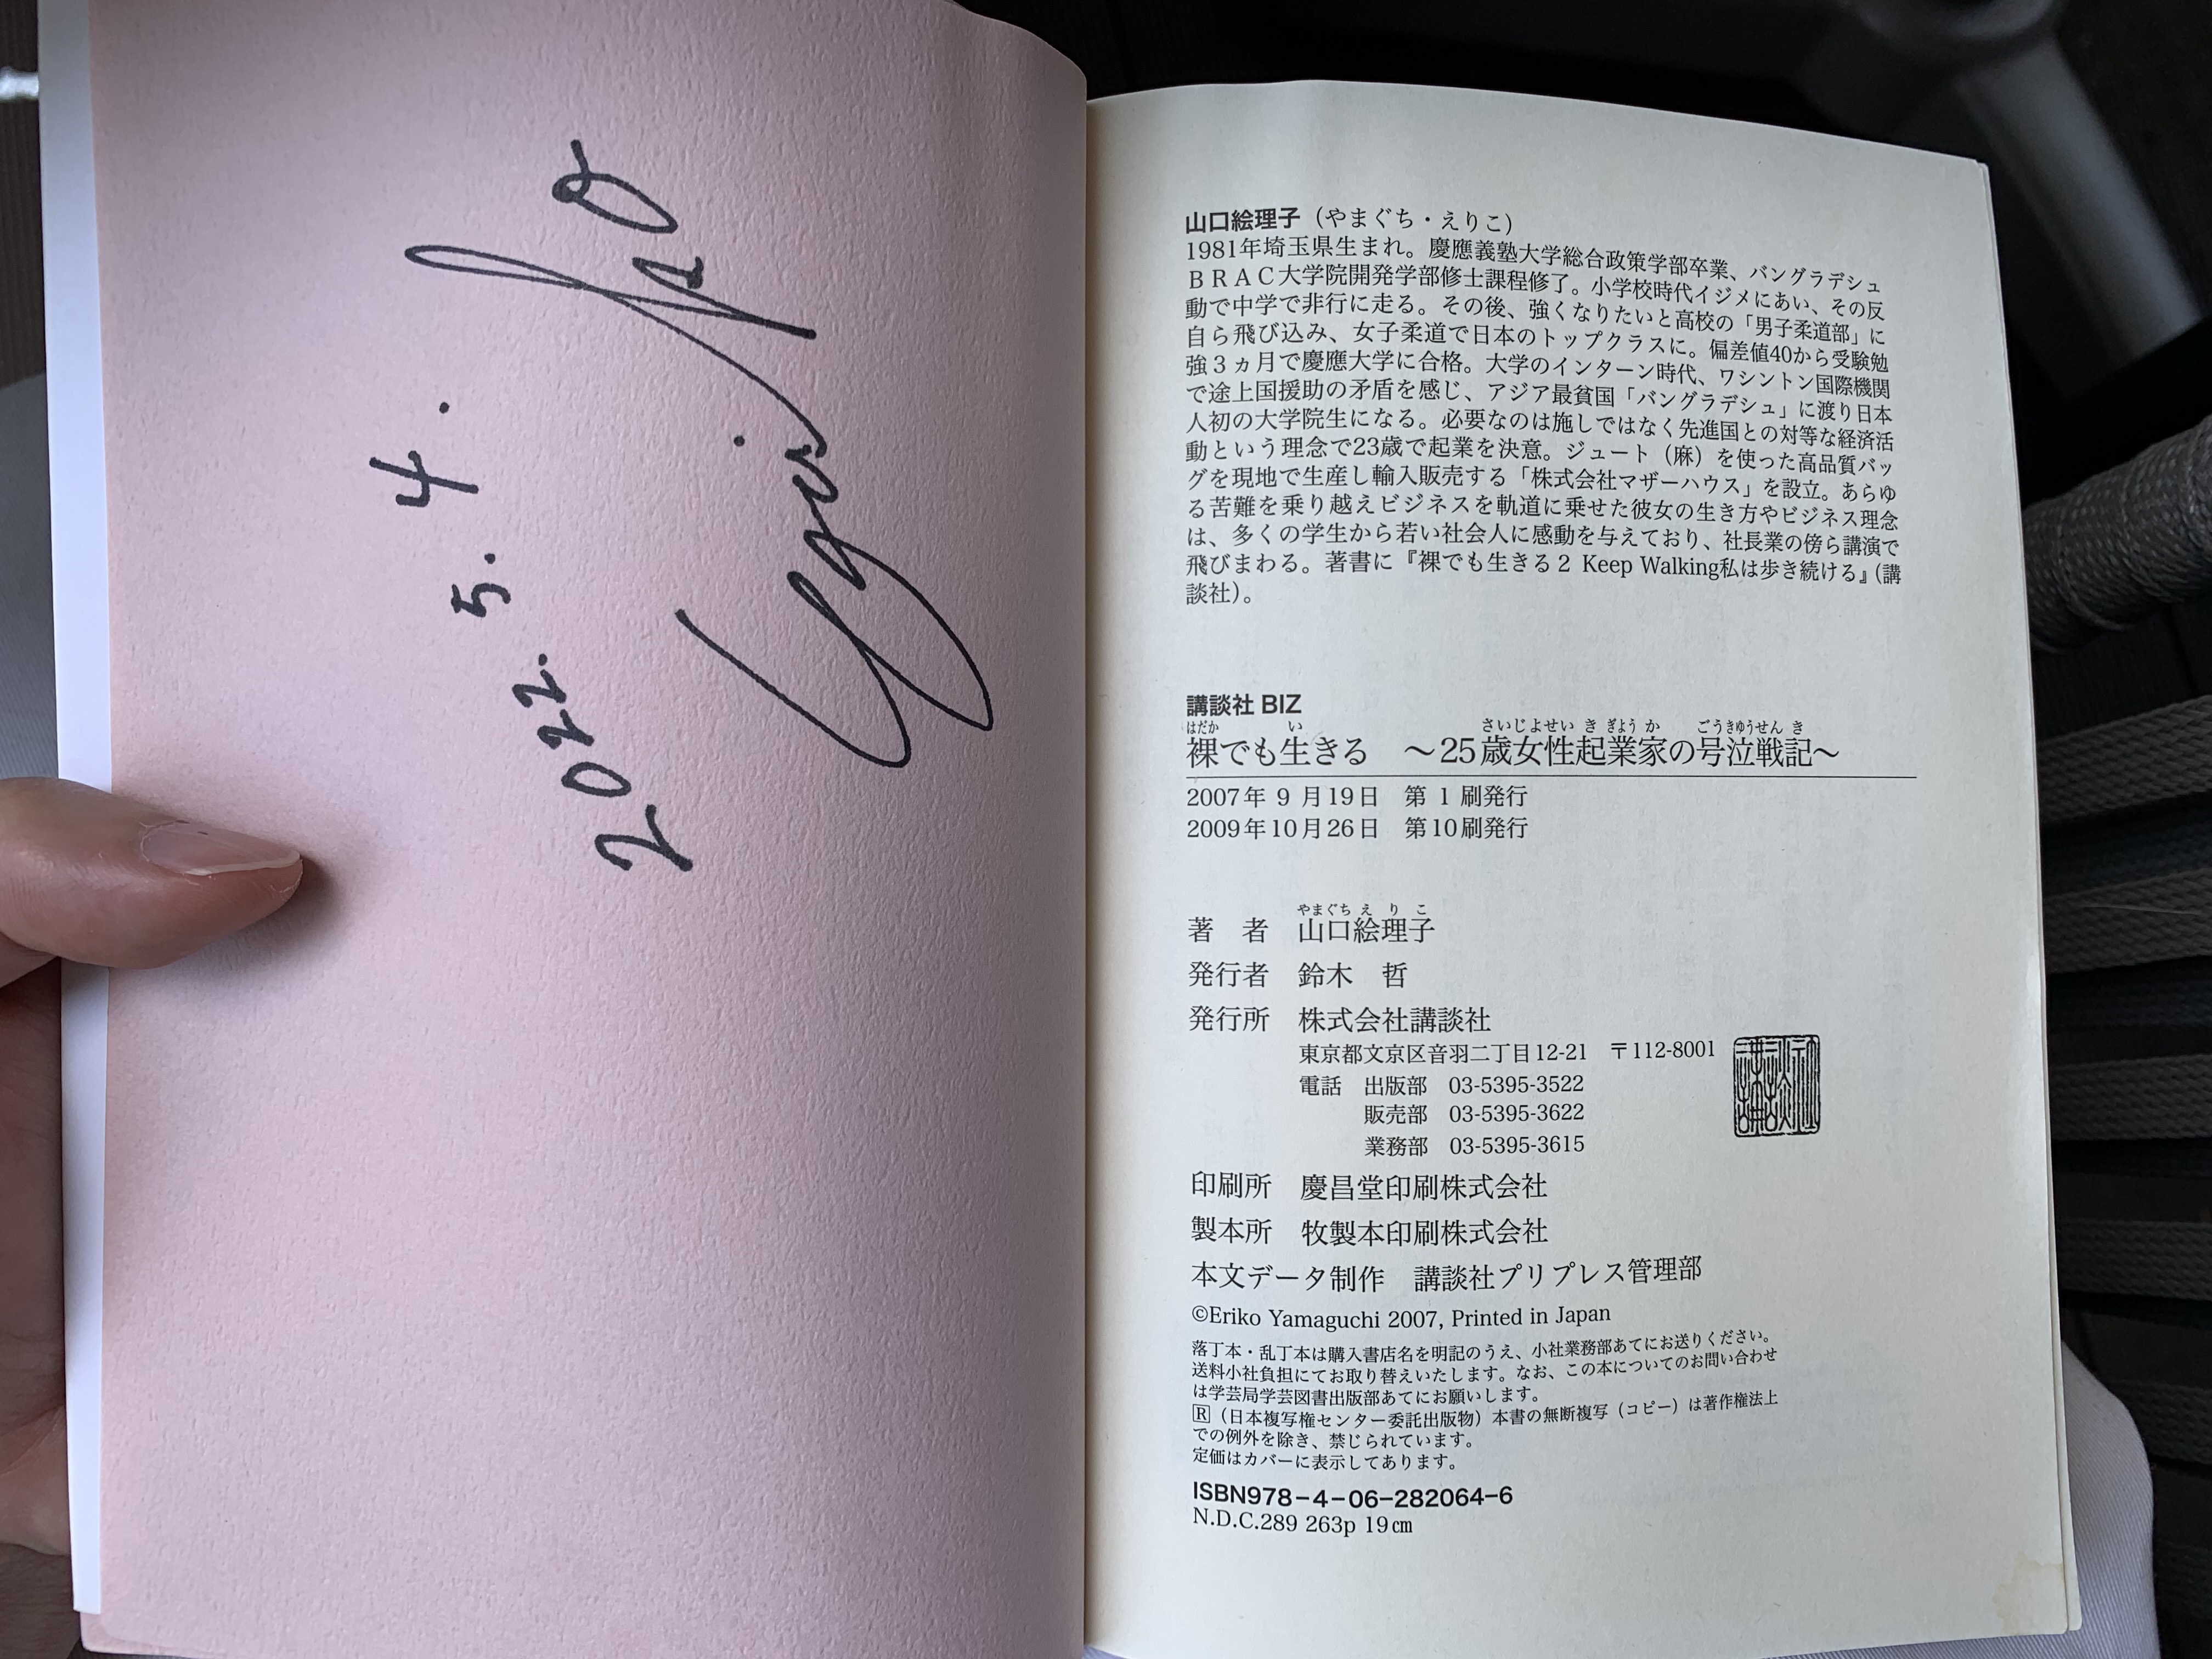 2022. 5. 4.
山口絵理子（やまぐち・えりこ）
1981年埼玉県生まれ。慶應義塾大学総合政策学部卒業、バングラデシュ
ＢＲＡＣ大学院開発学部修士課程修了。小学校時代イジメにあい、その反
動で中学で非行に走る。その後、強くなりたいと高校の「男子柔道部」に
自ら飛び込み、女子柔道で日本のトップクラスに。偏差値40から受験勉
強３ヵ月で慶應大学に合格。大学のインターン時代、ワシントン国際機関
で途上国援助の矛盾を感じ、アジア最貧国「バングラデシュ」に渡り日本
人初の大学院生になる。必要なのは施しではなく先進国との対等な経済活
動という理念で23歳で起業を決意。ジュート（麻）を使った高品質バッ
グを現地で生産し輸入販売する「株式会社マザーハウス」を設立。あらゆ
る苦難を乗り越えビジネスを軌道に乗せた彼女の生き方やビジネス理念
は、多くの学生から若い社会人に感動を与えており、社長業の傍ら講演で
飛びまわる。著書に『裸でも生きる２ Keep Walking私は歩き続ける』（講
談社）。
講談社 BIZ
はだか い さいじょせい き ぎょう か ごうきゅうせん き
裸でも生きる ～25歳女性起業家の号泣戦記～
2007年 9 月19日 第 1 刷発行
2009年10月26日 第10刷発行
やまぐち え り こ
著 者 山口絵理子
発行者 鈴木 哲
発行所 株式会社講談社
東京都文京区音羽二丁目12-21 〒112-8001
電話 出版部 03-5395-3522
販売部 03-5395-3622
業務部 03-5395-3615
印刷所 慶昌堂印刷株式会社
製本所 牧製本印刷株式会社
本文データ制作 講談社プリプレス管理部
©Eriko Yamaguchi 2007, Printed in Japan
落丁本・乱丁本は購入書店名を明記のうえ、小社業務部あてにお送りください。
送料小社負担にてお取り替えいたします。なお、この本についてのお問い合わせ
は学芸局学芸図書出版部あてにお願いします。
R（日本複写権センター委託出版物）本書の無断複写（コピー）は著作権法上
での例外を除き、禁じられています。
定価はカバーに表示してあります。
ISBN978-4-06-282064-6
N.D.C.289 263p 19㎝